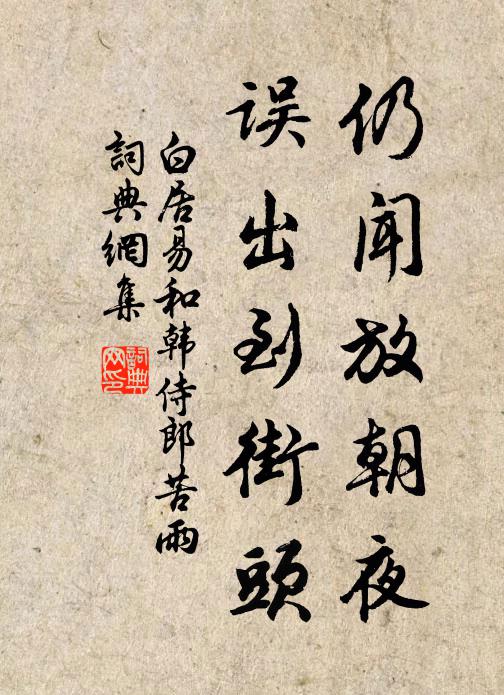 仍闻放朝夜
误出到街頭
白居易和韩侍郎苦雨
詞典網集
詞典网印